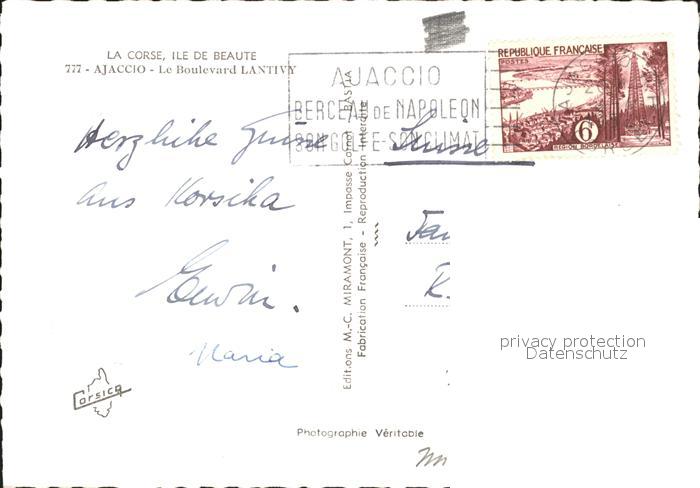 LA CORSE, ILE DE BEAUTE
777 - AJACCIO - Le Boulevard LANTIVY
AJACCIO
BERCEAU DE NAPOLEON
SON GOLFE - SON CLIMAT
REPUBLIQUE FRANÇAISE
POSTES
6F
REGION BORDELAISE
Herzliche Grüsse
aus Korsika
Erwin.
Maria
Suisse
Fa
K.
Editions M.-C. MIRAMONT, 1, Impasse Carnot BASTIA
Fabrication Française - Reproduction Interdite
privacy protection
Datenschutz
Corsica
Photographie Véritable